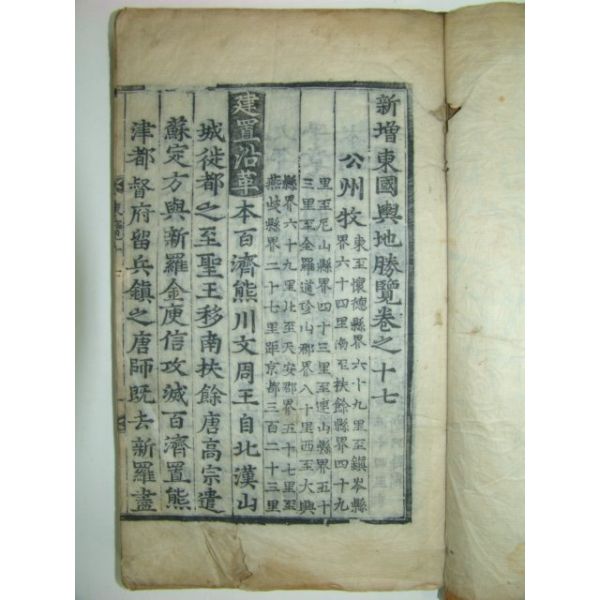 新增東國輿地勝覽卷之十七
公州牧
東至懷德縣界六十九里至鎭岑縣
界六十四里南至扶餘縣界四十九
里至尼山縣界四十三里至連山縣界五十
三里至全羅道珍山郡界八十里西至大興
縣界六十九里北至天安郡界五十七里至
燕岐縣界二十七里距京都三百二十三里
建置沿革本百濟熊川文周王自北漢山
城徙都之至聖王移南扶餘唐高宗遣
蘇定方與新羅金庾信攻滅百濟置熊
津都督府留兵鎭之唐師旣去新羅盡